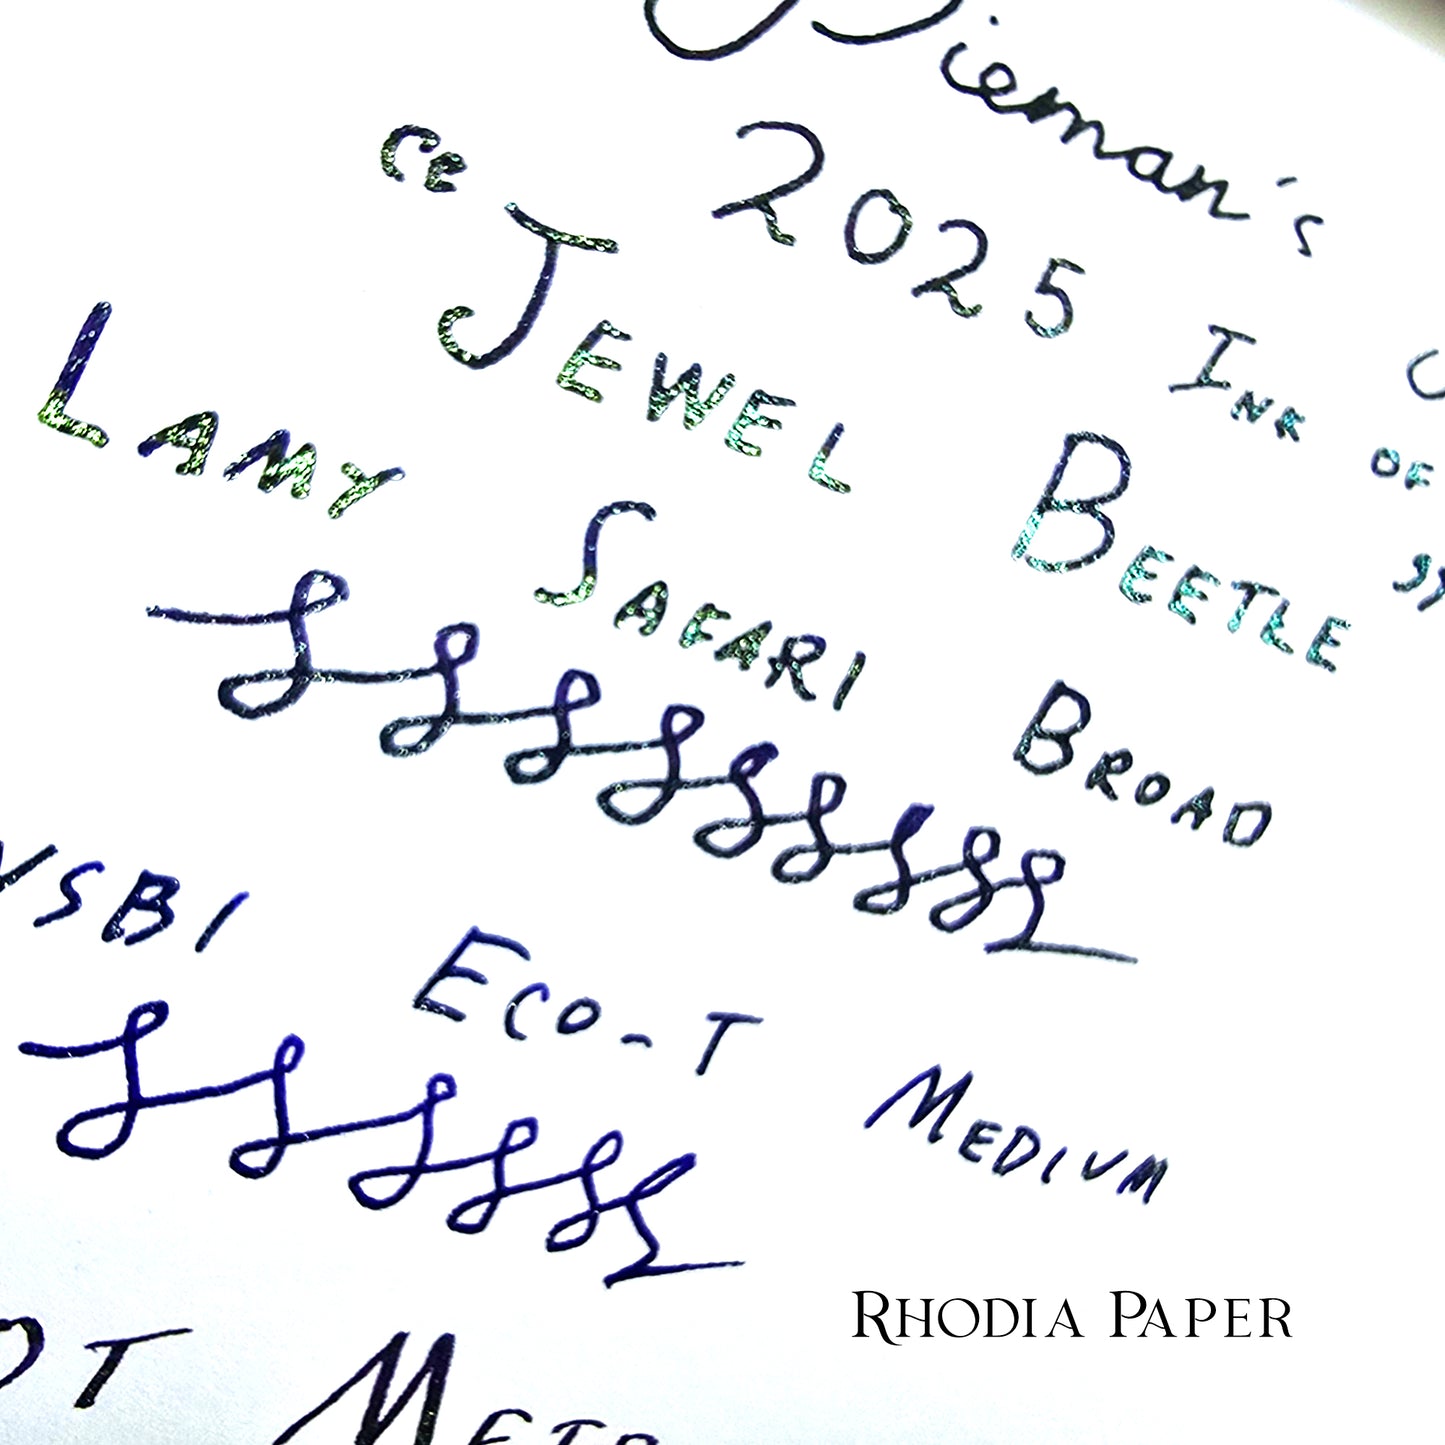 Dieman's
2025 INK OF
“JEWEL BEETLE”
LAMY SAFARI BROAD
VSBI ECO-T MEDIUM
OT METR
RHODIA PAPER